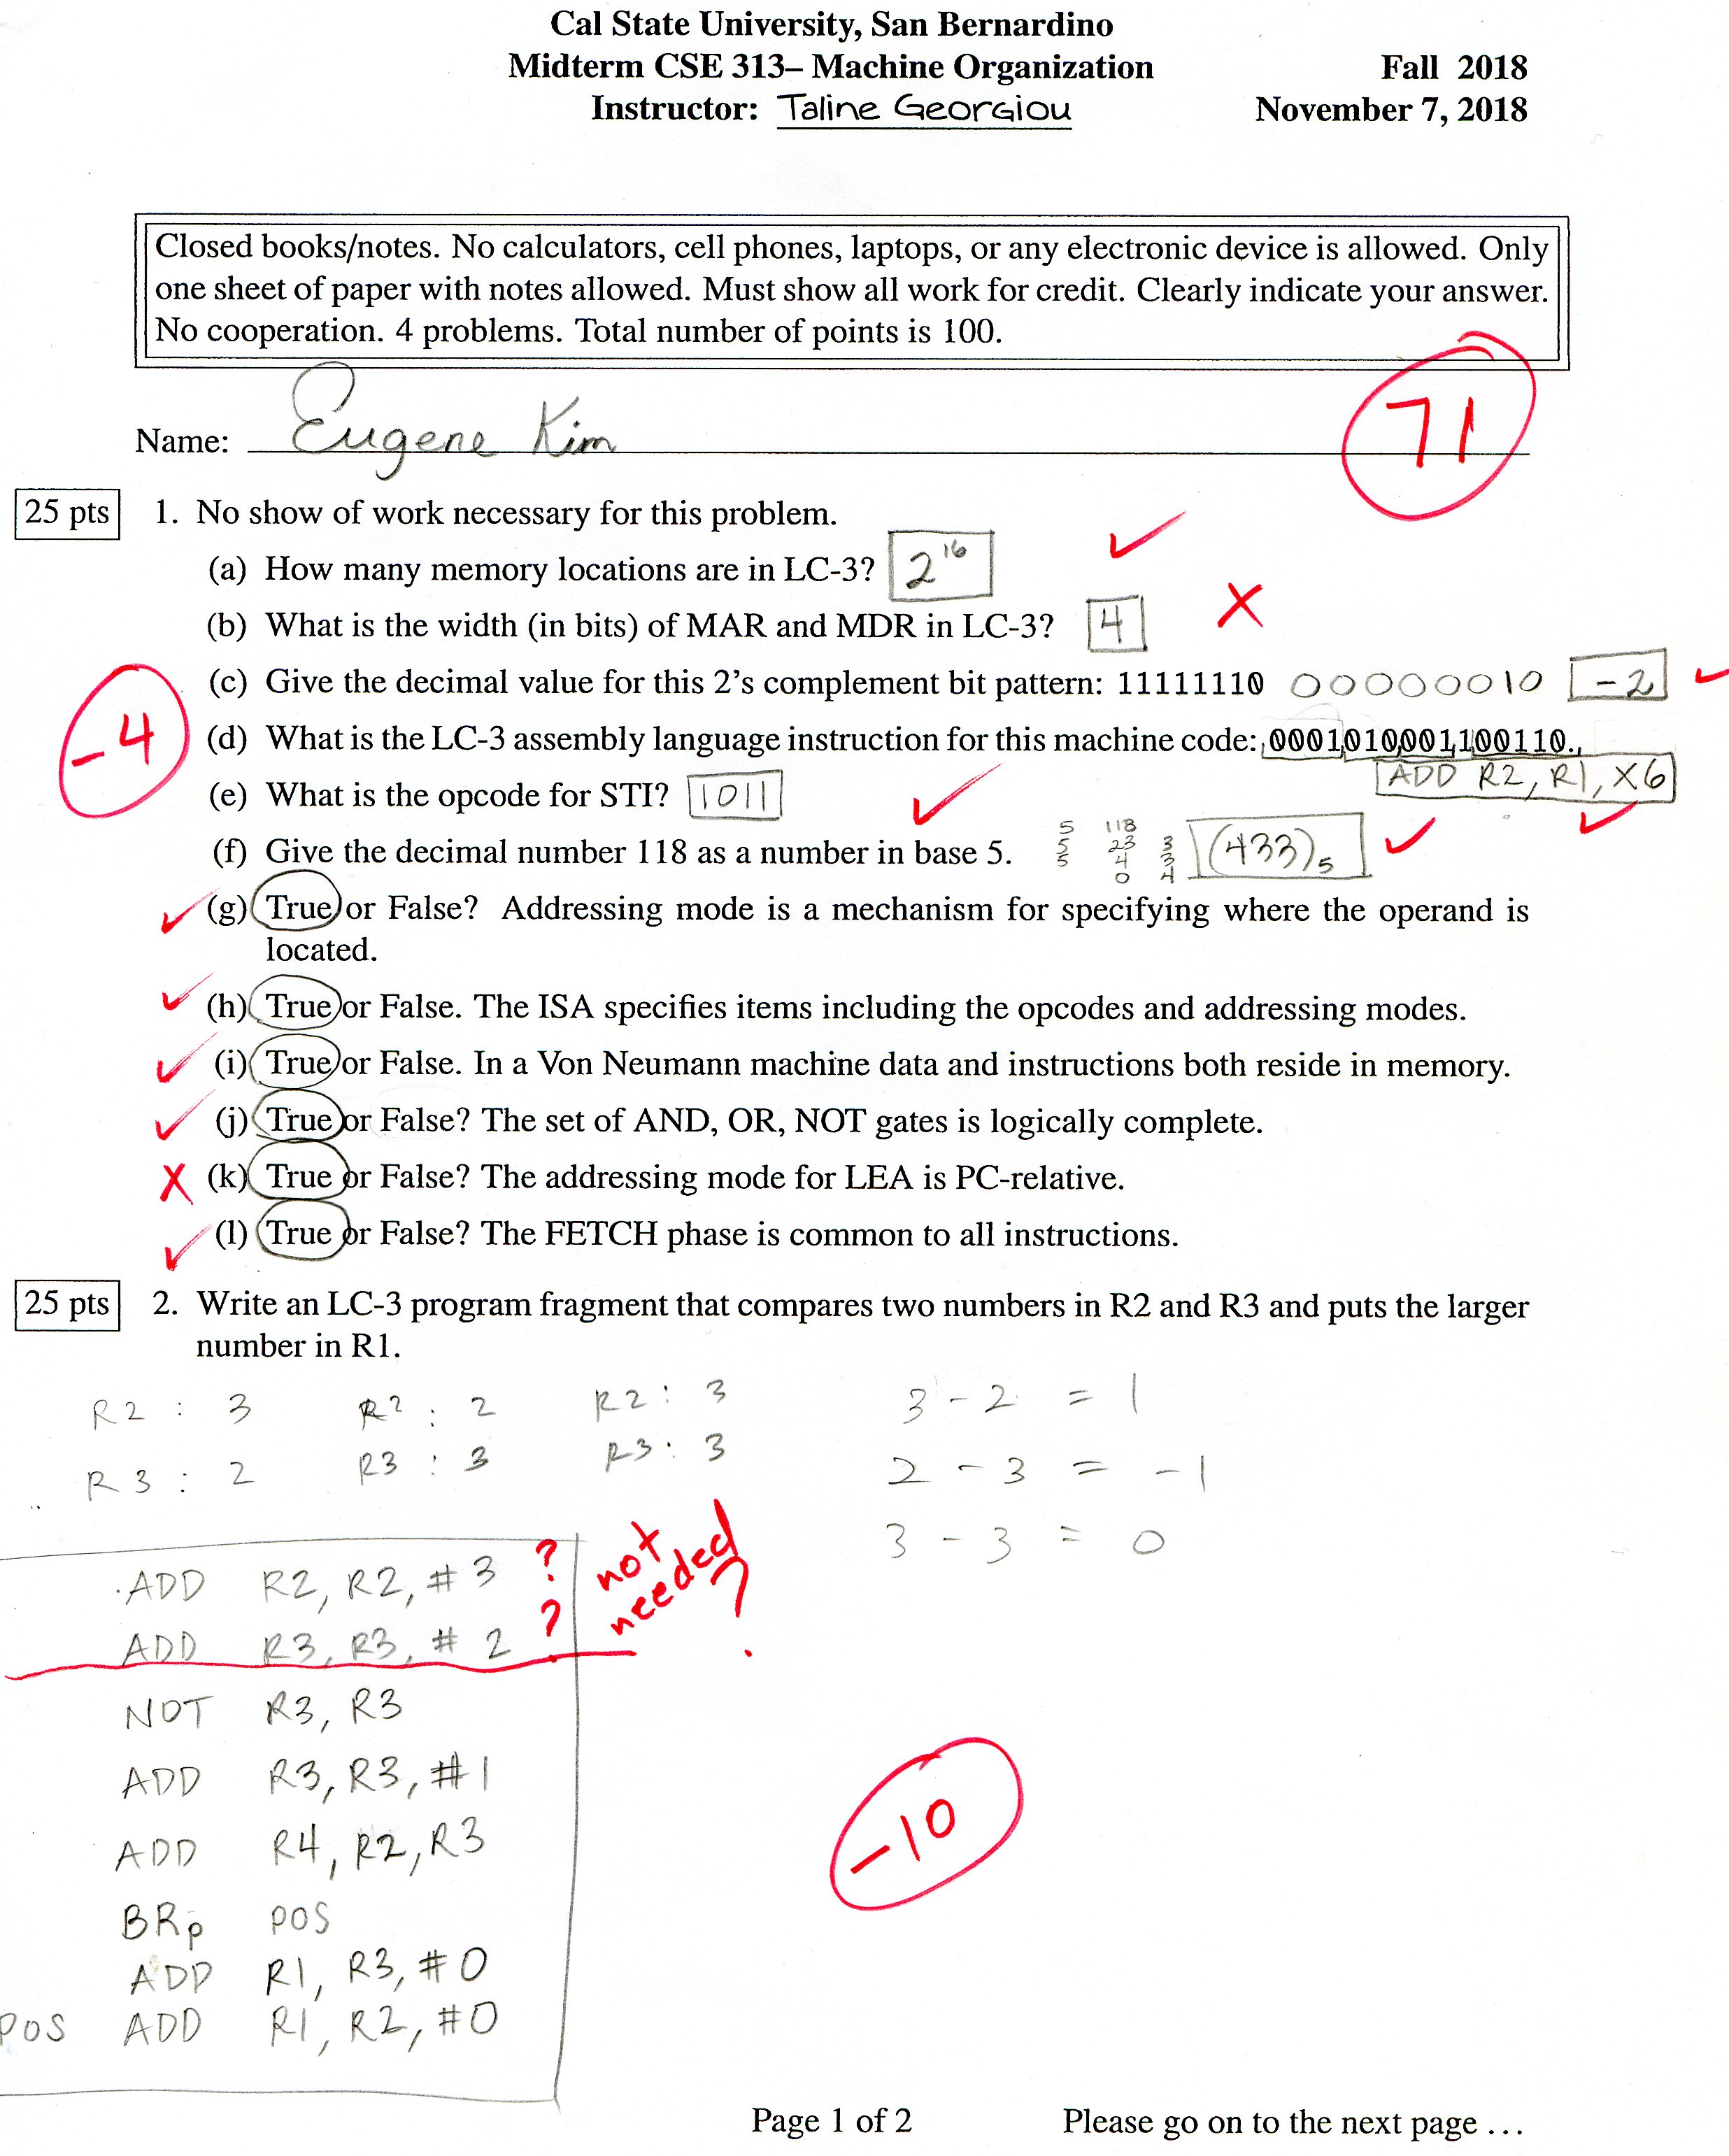 Cal State University, San Bernardino
Midterm CSE 313– Machine Organization Fall 2018
Instructor: Taline Georgiou November 7, 2018
Closed books/notes. No calculators, cell phones, laptops, or any electronic device is allowed. Only
one sheet of paper with notes allowed. Must show all work for credit. Clearly indicate your answer.
No cooperation. 4 problems. Total number of points is 100.
71
Name: Eugene Kim
25 pts 1. No show of work necessary for this problem.
(a) How many memory locations are in LC-3? 2^16 ✓
(b) What is the width (in bits) of MAR and MDR in LC-3? 4 X
(c) Give the decimal value for this 2's complement bit pattern: 11111110 00000010 -2 ✓
-4
(d) What is the LC-3 assembly language instruction for this machine code: 0001010001100110.
ADD R2, R1, X6 ✓
(e) What is the opcode for STI? 1011 ✓
(f) Give the decimal number 118 as a number in base 5. (433)5 ✓
5 118
5 23 3
5 4 3
0 4
✓ (g) True or False? Addressing mode is a mechanism for specifying where the operand is
located.
✓ (h) True or False. The ISA specifies items including the opcodes and addressing modes.
✓ (i) True or False. In a Von Neumann machine data and instructions both reside in memory.
✓ (j) True or False? The set of AND, OR, NOT gates is logically complete.
X (k) True or False? The addressing mode for LEA is PC-relative.
✓ (l) True or False? The FETCH phase is common to all instructions.
25 pts 2. Write an LC-3 program fragment that compares two numbers in R2 and R3 and puts the larger
number in R1.
R2 : 3 R2 : 2 R2 : 3 3 - 2 = 1
R3 : 2 R3 : 3 R3 : 3 2 - 3 = -1
3 - 3 = 0
ADD R2, R2, #3 ? not
ADD R3, R3, #2 ? needed?
NOT R3, R3
ADD R3, R3, #1
ADD R4, R2, R3
-10
BRp POS
ADD R1, R3, #0
POS ADD R1, R2, #0
Page 1 of 2 Please go on to the next page ...